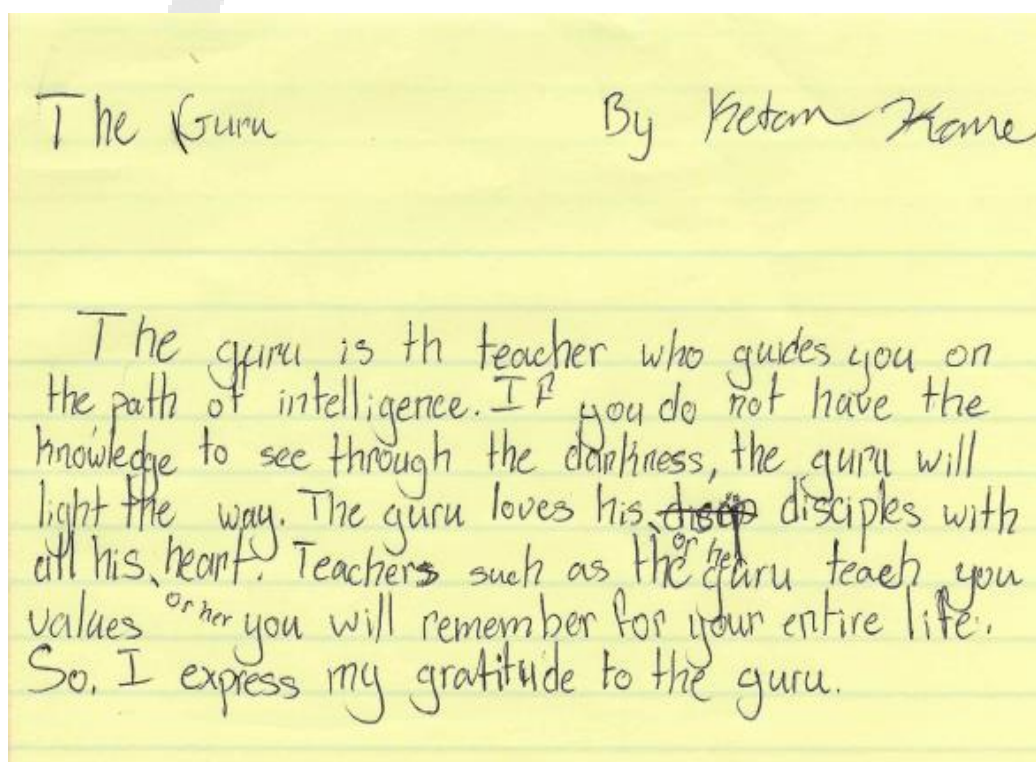 The Guru By Ketan
The guru is th teacher who guides you on
the path of intelligence. If you do not have the
knowledge to see through the darkness, the guru will
light the way. The guru loves his or her disciples with
all his or her heart. Teachers such as the guru teach you
values you will remember for your entire life.
So, I express my gratitude to the guru.